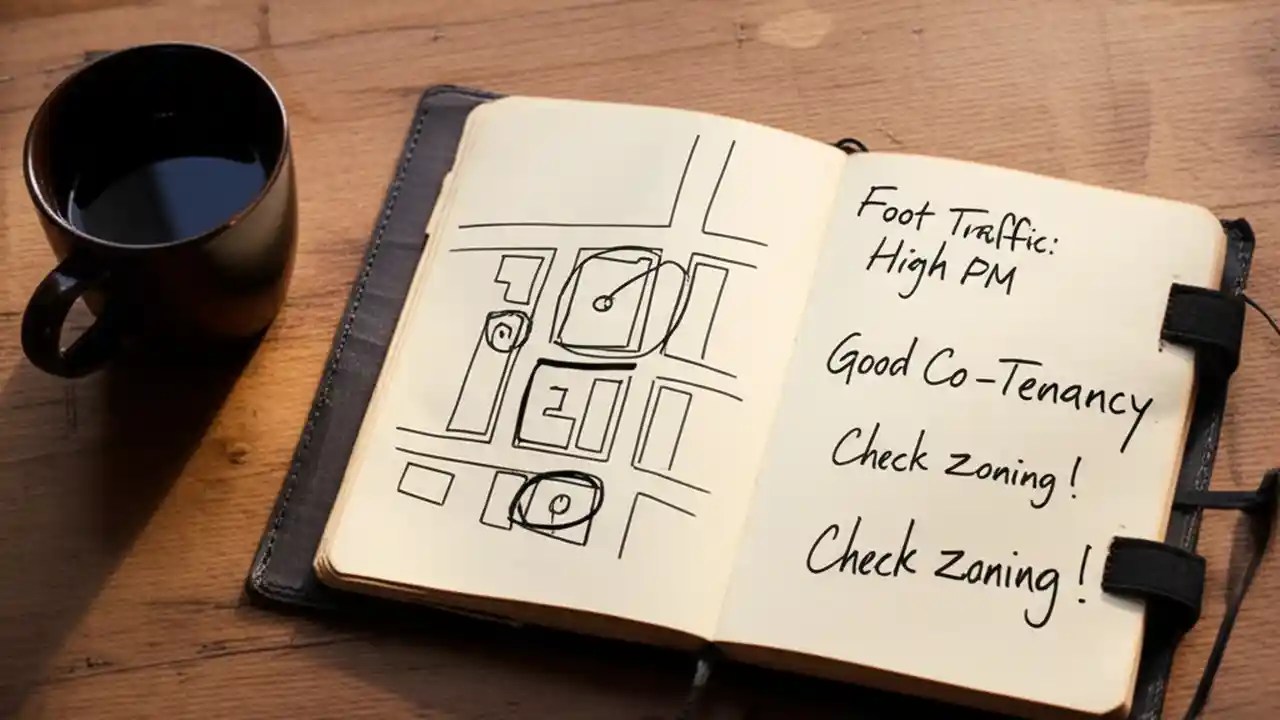 Foot Traffic:
High PM
Good Co-Tenancy
Check zoning!
Check zoning!